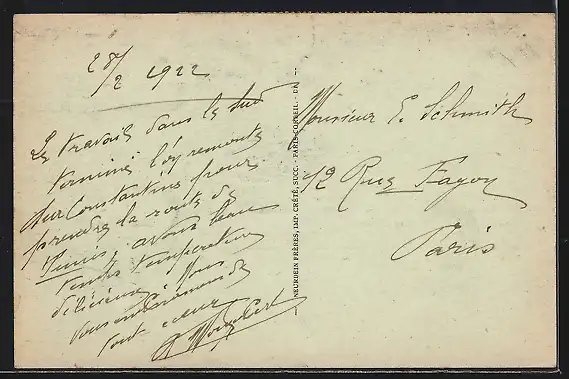 28/2 1922
Le travail dans le Sud
terminé l'on remonte
sur Constantine pour
prendre la route de
Tunis, avons beau
temps température
délicieuse. Nous
vous embrassons de
tout cœur
NEURDEIN FRÈRES, IMP. CRÉTÉ, SUCC. - PARIS-CORBEIL. - CA.
Monsieur E. Schmith
12 Rue Fagon
Paris